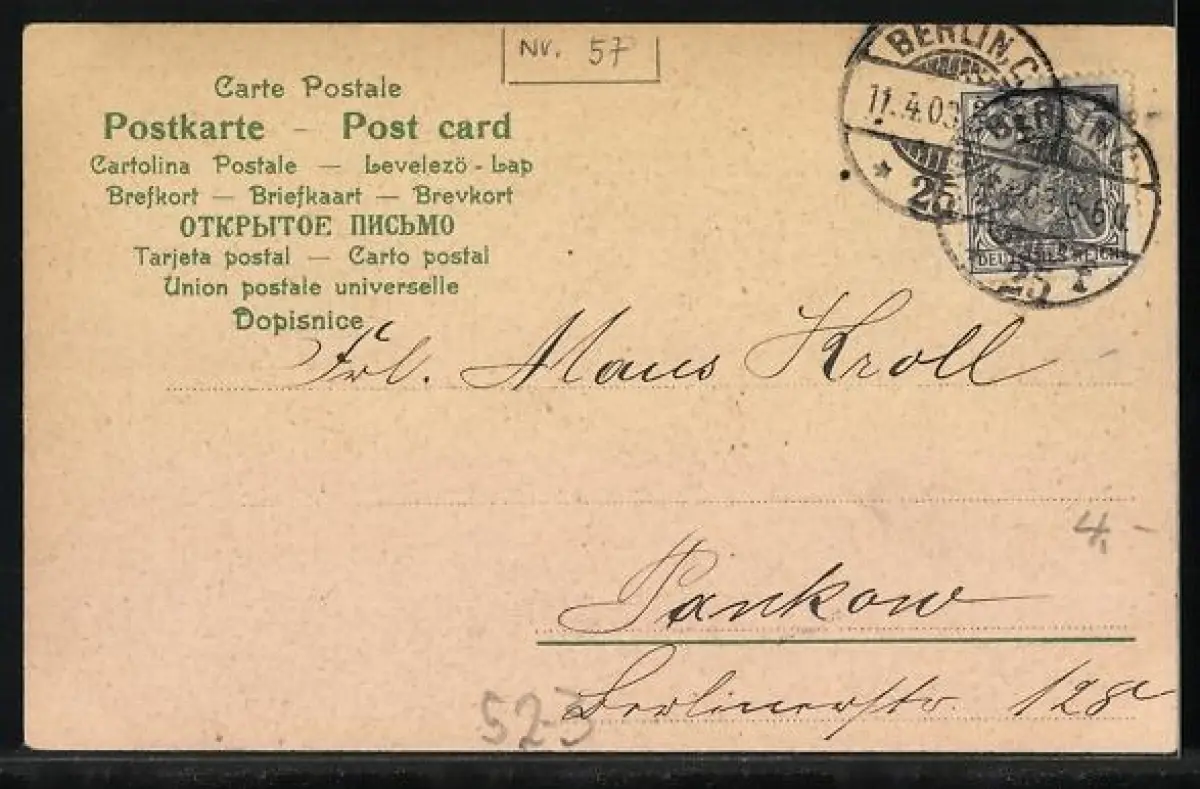 Nr. 57
Carte Postale
Postkarte - Post card
Cartolina Postale — Levelezö-Lap
Brefkort — Briefkaart — Brevkort
ОТКРЫТОЕ ПИСЬМО
Tarjeta postal — Carto postal
Union postale universelle
Dopisnice
BERLIN, C.
11.4.03
* 25
BERLIN, C.
25
DEUTSCHES REICH
Frl. Maus Kroll
4,-
Pankow
Berlinerstr. 128
523